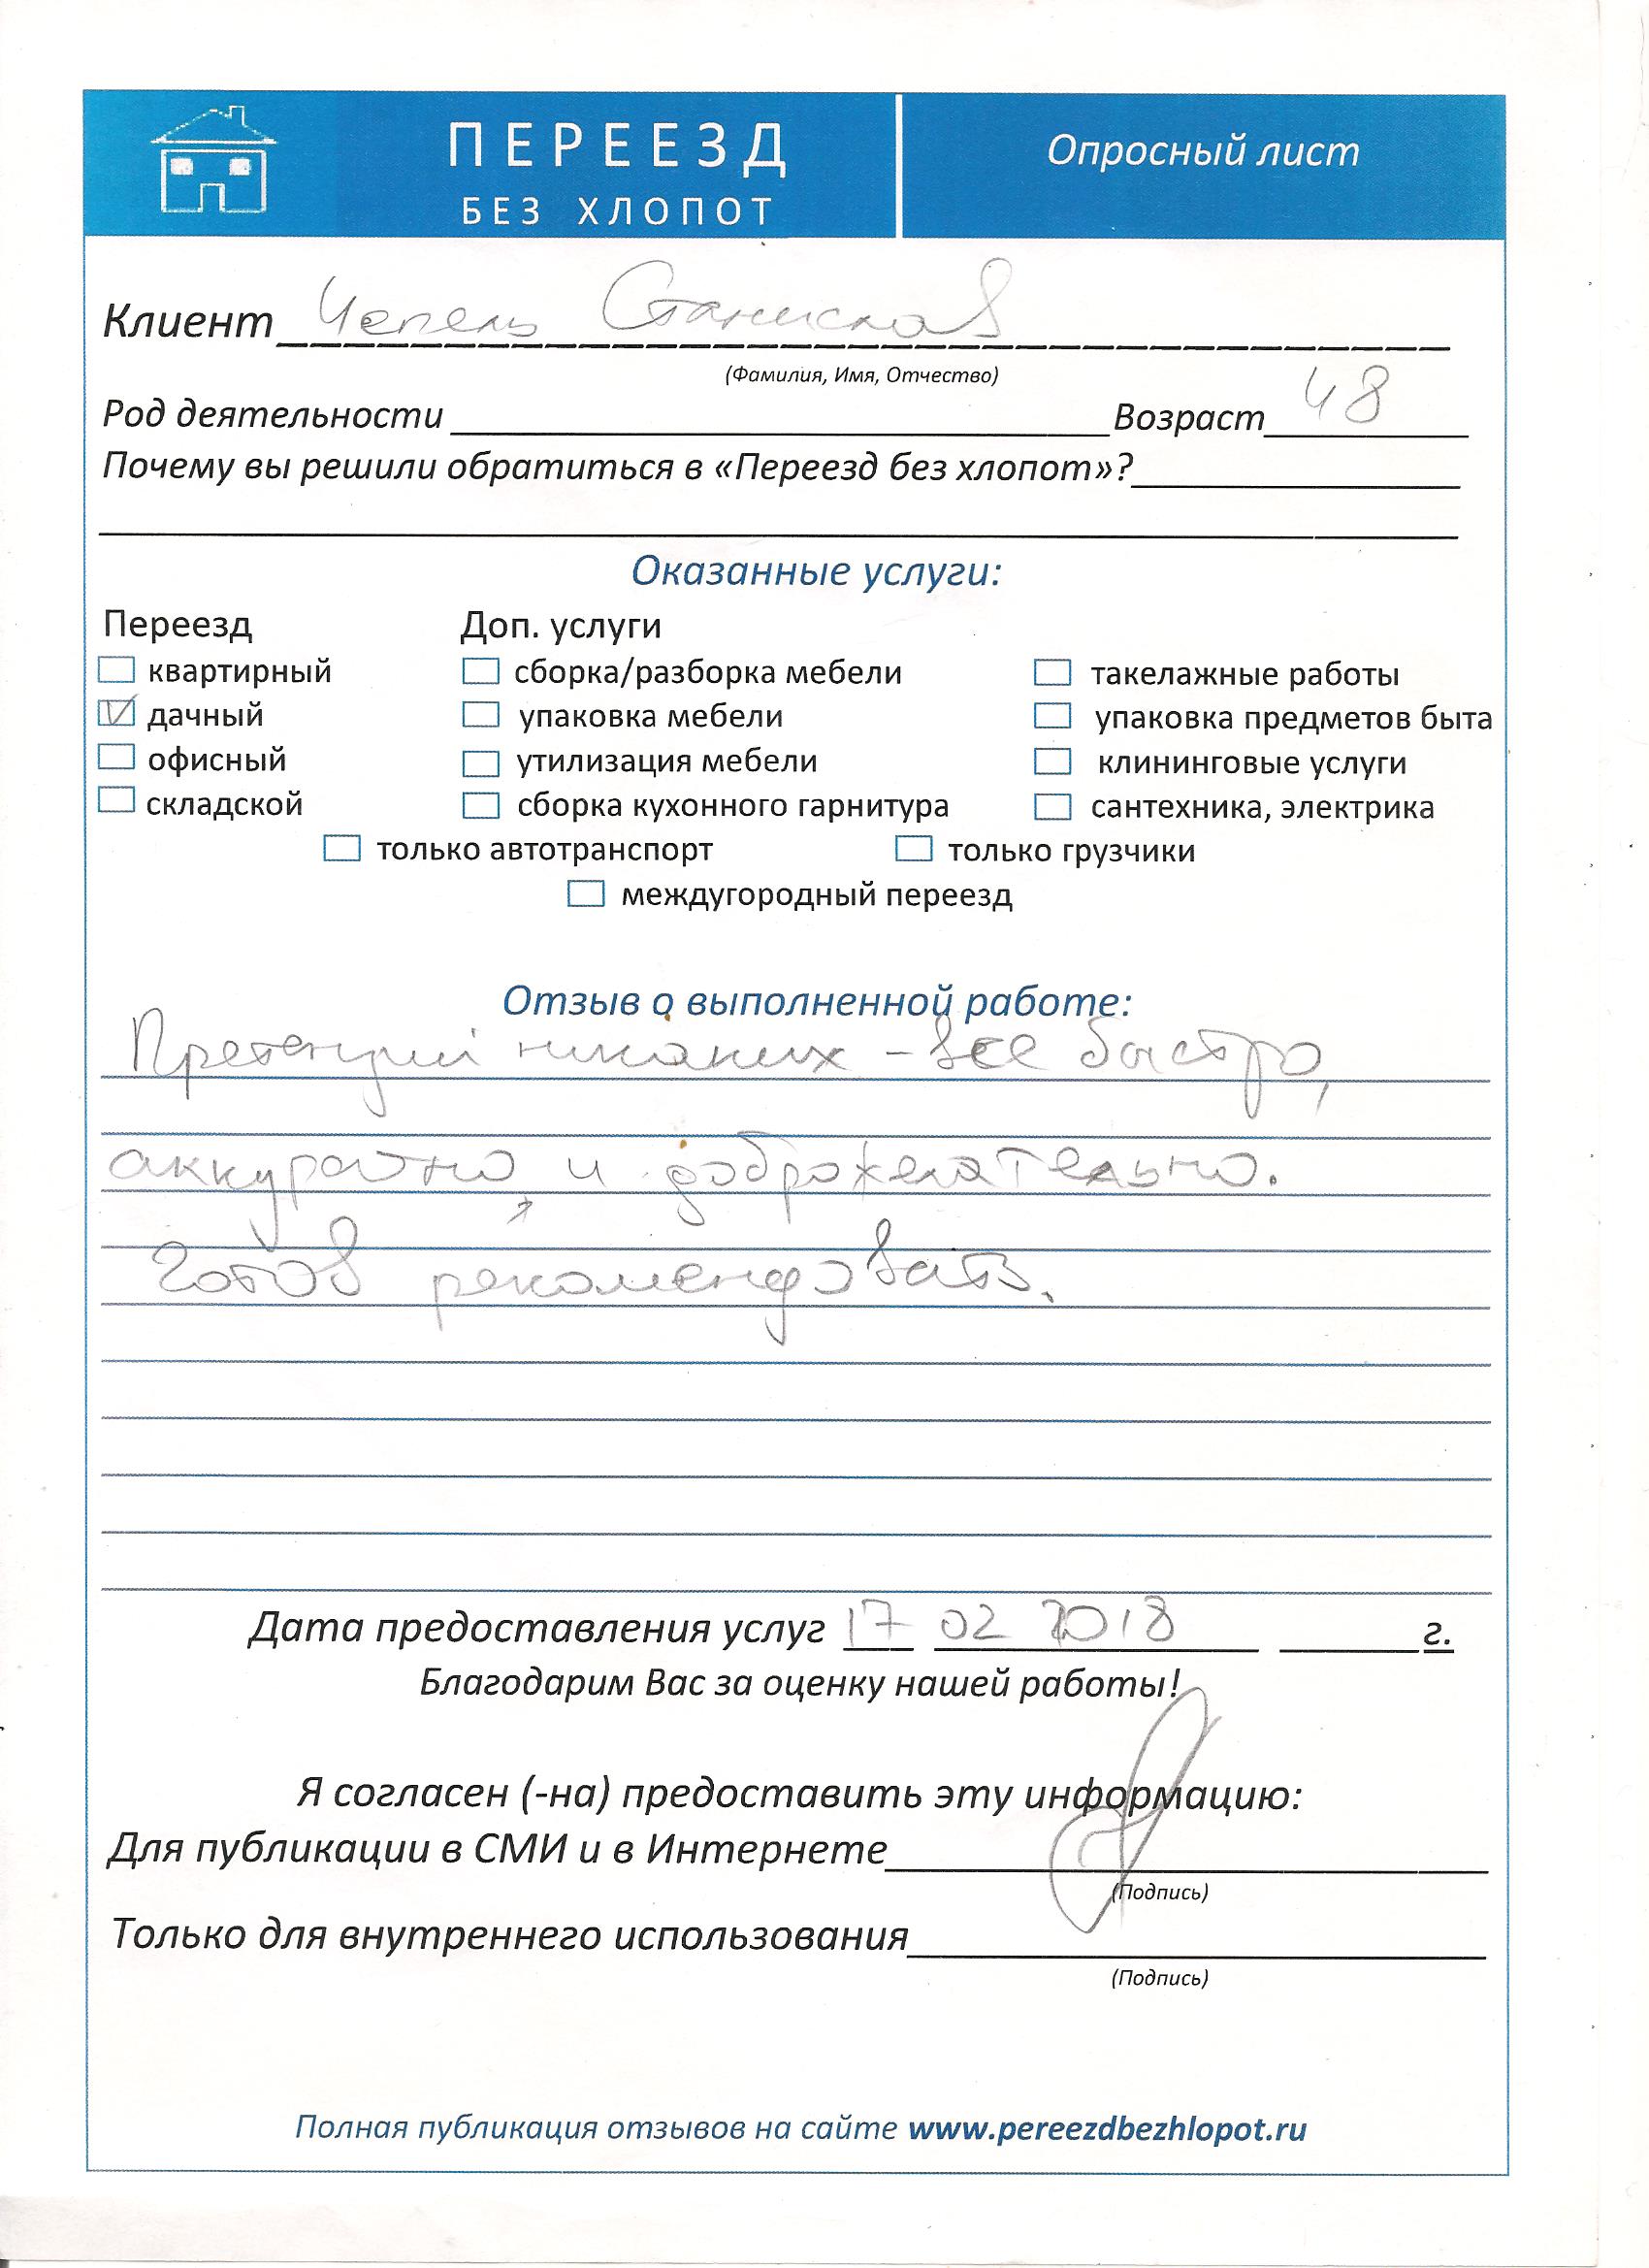 ПЕРЕЕЗД
БЕЗ ХЛОПОТ
Опросный лист
Клиент Чепель Станислав
(Фамилия, Имя, Отчество)
Род деятельности Возраст 48
Почему вы решили обратиться в «Переезд без хлопот»?
Оказанные услуги:
Переезд Доп. услуги
квартирный сборка/разборка мебели такелажные работы
дачный упаковка мебели упаковка предметов быта
офисный утилизация мебели клининговые услуги
складской сборка кухонного гарнитура сантехника, электрика
только автотранспорт только грузчики
междугородный переезд
Отзыв о выполненной работе:
Претензий никаких - все быстро,
аккуратно и доброжелательно.
Готов рекомендовать.
Дата предоставления услуг 17 02 2018 г.
Благодарим Вас за оценку нашей работы!
Я согласен (-на) предоставить эту информацию:
Для публикации в СМИ и в Интернете
(Подпись)
Только для внутреннего использования
(Подпись)
Полная публикация отзывов на сайте www.pereezdbezhlopot.ru